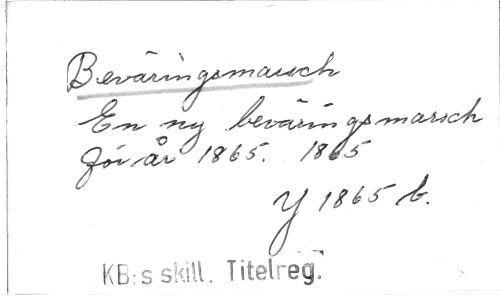 Beväringsmarsch
En ny beväringsmarsch
för år 1865. 1865
Y 1865 b.
KB:s skill. Titelreg.